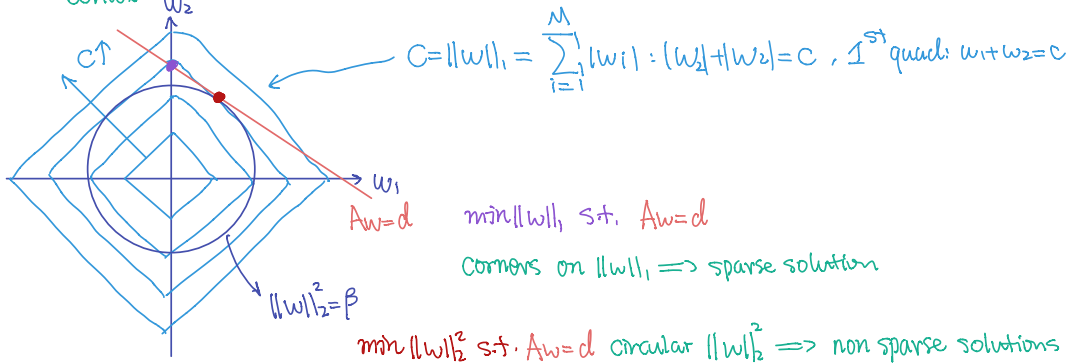 w₂
C↑
C=||w||₁ = ∑ᵢ₌₁ᴹ |wᵢ| : |w₂|+|w₂|=C , 1ˢᵗ quad: w₁+w₂=C
w₁
Aw=d
min||w||₁ s.t. Aw=d
corners on ||w||₁ ⟹ sparse solution
||w||₂²=β
min ||w||₂² s.t. Aw=d circular ||w||₂² ⟹ non sparse solutions